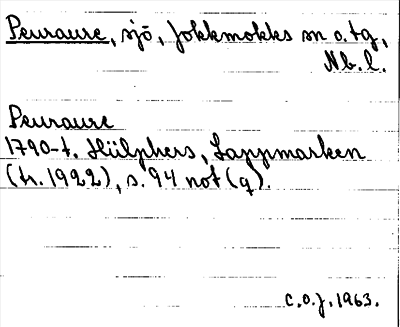 Peuraure, sjö, Jokkmokks sn o. tg,
Nb. l.
Peuraure
1790-t. Hülphers, Lappmarken
(tr. 1922), s. 94 not (q).
C.O.J. 1963.